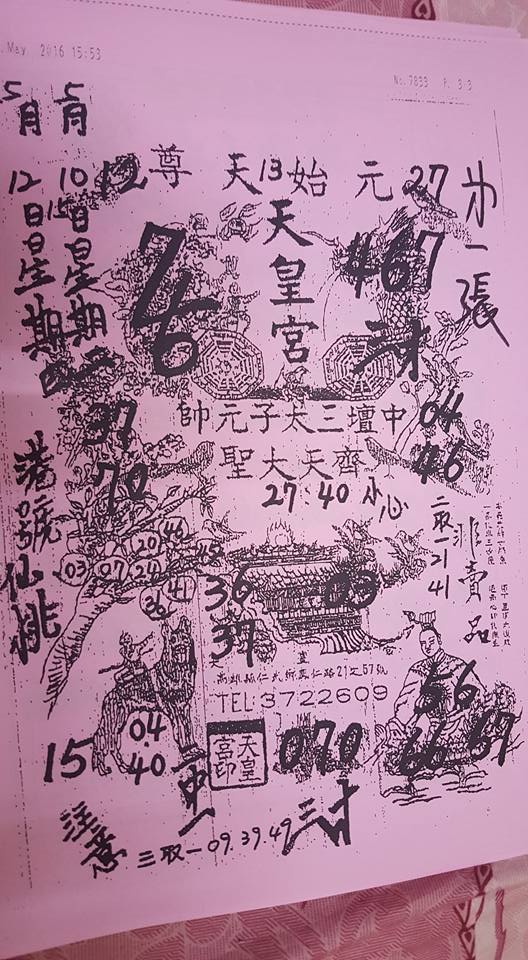 May 2016 15:53
No.7833 P. 3/3
5月 5月
12日星期四
10日星期
12
尊天始元
13
27
第一張
天皇宮
7
46
#67
37
70
帥元子太三壇中
04
46
聖大天齊
27.40 小心
港號仙桃
20
46
45
03
07
24
41
36
36
37
03
二取一21
41
非賣品
高雄縣仁武鄉
仁路21之57號
TEL 3722609
56
66
67
04.
40
15
天皇宮印
070
注意
三取一09.39.49